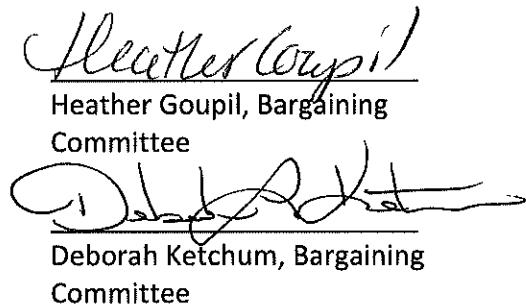 Heather Goupil
Heather Goupil, Bargaining
Committee
Deborah Ketchum
Deborah Ketchum, Bargaining
Committee